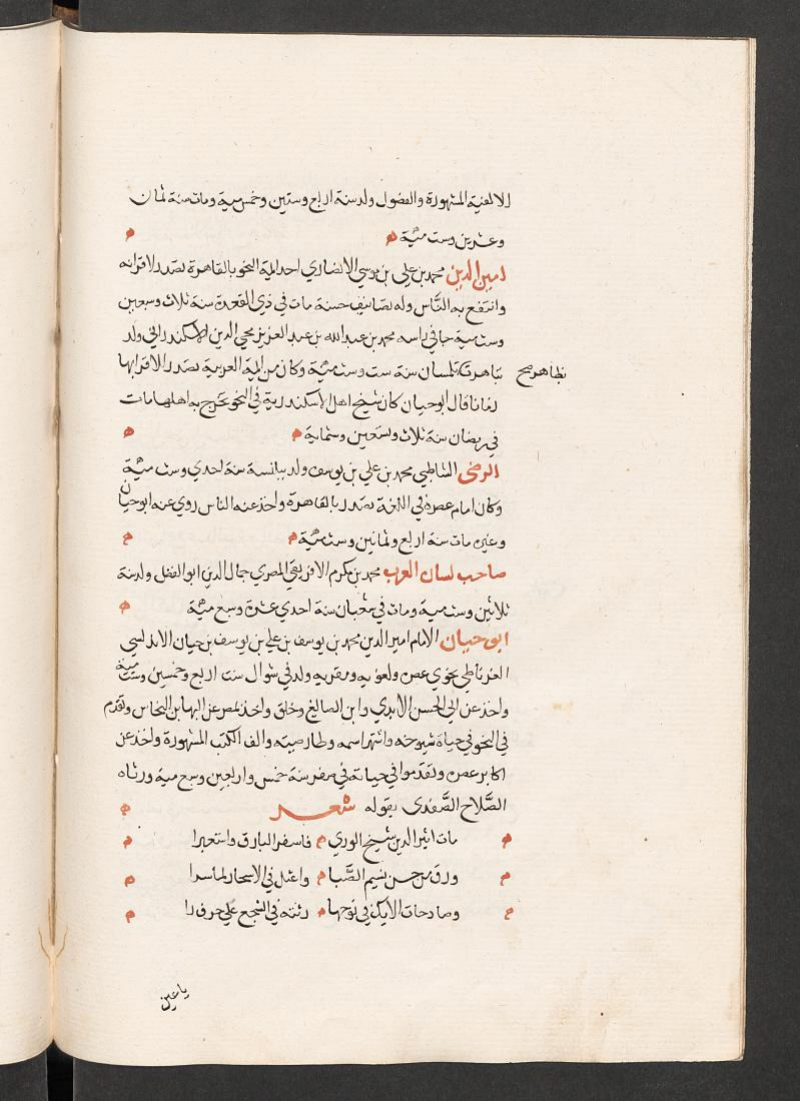 الالفية المشهورة والفصول ولد سنة اربع وستين وخمس مية ومات سنة ثمان
وعشرين وست مئية
امين الدين محمد بن علي بن موسي الانصاري احد ايمة النحو بالقاهرة تصدر لاقرايه
وانتفع به النَّاس وله تصانيف حسنة مات في ذي القعدة سنة ثلاث وسبعين
وست مية حافي راسه محمد بن عبد الله بن عبد العزيز محي الدين الاسكندراني ولد
بتاهرت تلمسان سنة ست وست مئية وكان من ايمة العربية تصدر لاقرايها
بظاهر صح
زمانا قال ابو حيان كان شيخ اهل الاسكندرية في النحو تخرج به اهلها مات
في رمضان سنة ثلاث وتسعين وستماية
الرضى الشاطبي محمد بن علي بن يوسف ولد ببلنسة سنة احدي وست مئية
وكان امام عصره في اللغة تصدر بالقاهرة واخذ عنه الناس روي عنه ابو حيان
وغيره مات سنة اربع وثمانين وست مئية
صاحب لسان العرب محمد بن مكرم الافريقي المصري جمال الدين ابو الفضل ولد سنة
ثلاثين وست مية ومات في شعبان سنة احدي عشرة وسبع مئية
ابو حيان الامام اثير الدين محمد بن يوسف بن علي بن يوسف بن حيان الاندلسي
الغرناطي نحوي عصره ولغويه ومقريه ولد في شوال سنت اربع وخمسين وست مية
واخذ عن ابي الحسن الابدي وابن الصايغ وخلق واخذ بمصر عن البها بن النحاس وتقدم
في النحو في حياة شيوخه واشتهر اسمه وطار صيته والف الكتب المشهورة واخذ عن
اكابر عصره وتقدموا في حياته في صفر سنة خمس واربعين وسبع مية ورثاه
الصَّلاح الصَّفدى بقوله شعر
مات اثير الدين شيخ الوري فاسعر البارق واستعبرا
ورق من حسن نسيم الصَّبا واعتل في الاسحار لما سرا
وصادحات الايك في نوحها رثته في السجع علي حرف را
يا عين